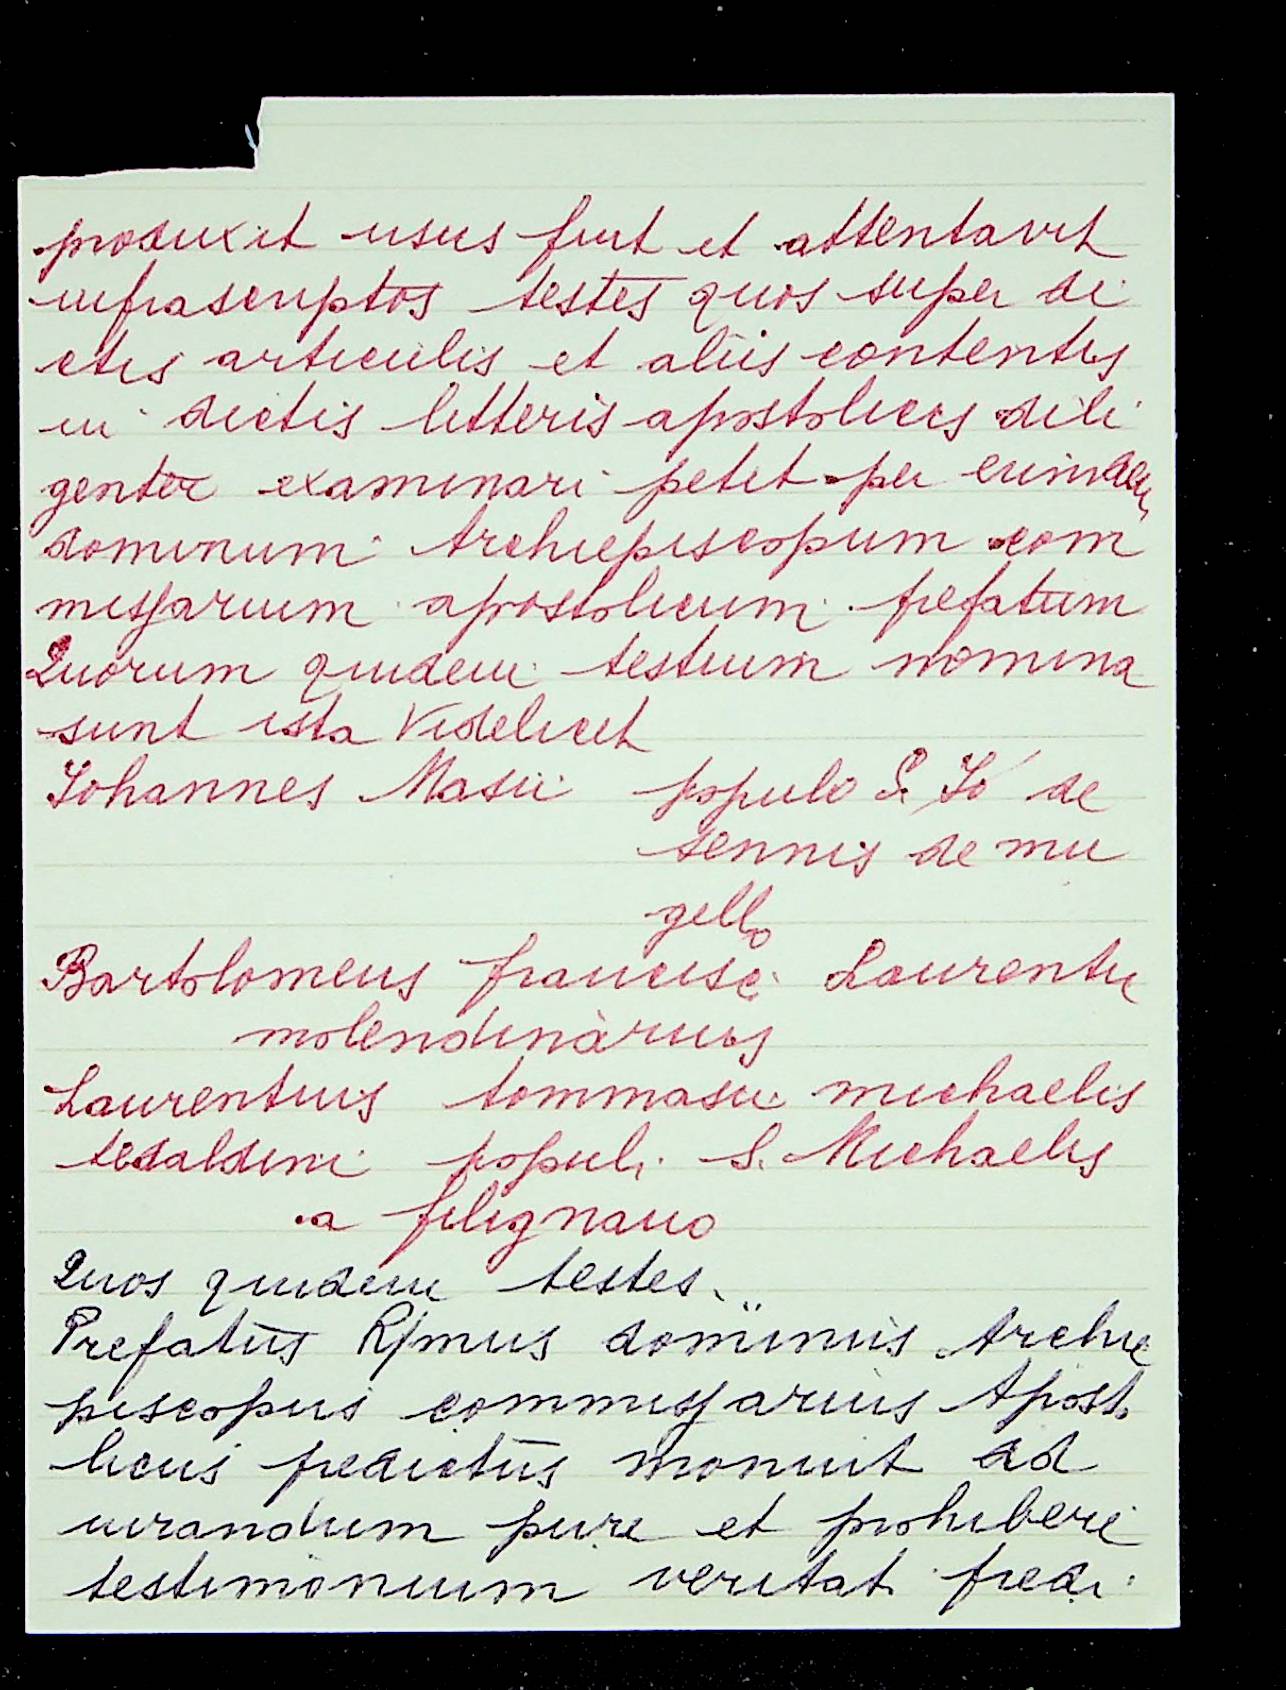 produxit usus fuit et attentavit
infrascriptos testes quos super di
ctis articulis et aliis contentis
in dictis litteris apostolicis dili
genter examinari petit per eumdem
dominum Archiepiscopum com
missarium apostolicum prefatum
Quorum quidem testium nomina
sunt ista Videlicet
Johannes Masii populo S. Jo de
sennis de mu
gello
Bartolomeus francisci Laurentii
molendinarius
Laurentius tommasii michaelis
tedaldini populi S. Michaelis
a filignano
Quos quidem testes
Prefatus R/mus dominus Archie
piscopus commissarius Aposto
licus predictus monuit ad
iurandum pure et prohibere
testimonium veritati predi